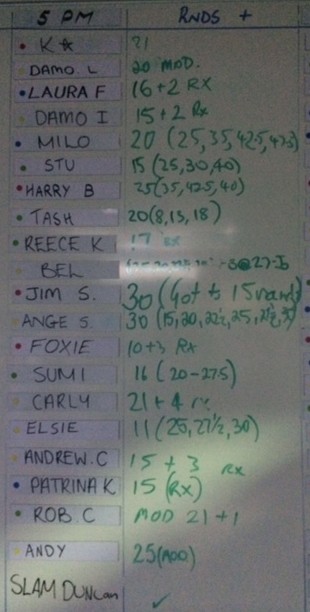 5 PM RNDS +
K☆ 21
DAMO. L 20 MOD.
LAURA F 16+2 RX
DAMO I 15+2 Rx
MILO 20 (25,35,42.5,47.5)
STU 15 (25,30,40)
HARRY B 25(35,42.5,40)
TASH 20(8,15,18)
REECE K 17 RX
BEL
JIM S. 30 (Got to 15
ANGE S. 30 (15,20,22½,25,
FOXIE 10+3 Rx
SUMI 16 (20-27.5)
CARLY 21+4
ELSIE 11 (25,27½,30)
ANDREW.C 15+3 RX
PATRINA K 15 (Rx)
ROB. C MOD 21+1
ANDY 25(MOD)
SLAM DUNCan ✓